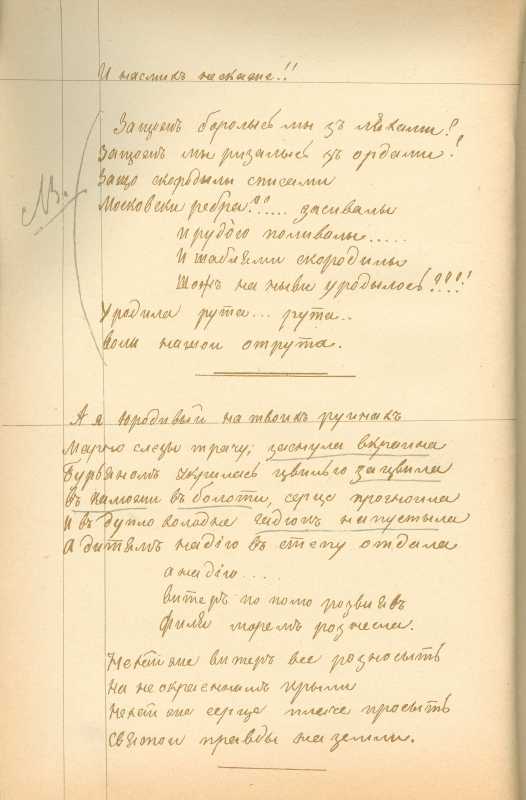 И наслихъ нескаже!!
Защомъ боролысь мы зъ ляхами?
Защомъ мы ризались зъ ордами?!
Защо скородылы списами
Московски ребра??...... засивалы
И рудою поливалы.....
И шаблями скородилы
Шожъ на ныви уродылось????!
Уродила рута... рута..
Воли нашои отрута.
А я юродивый на твоихъ руинахъ
Марно слезы трачу; заснула вкраина
Бурьяномъ укрылась цвилью зацвила
въ калюжи въ болоти, серце прогноила
И въ дупло холодне гадюкъ напустыла
А дитямъ надію въ степу оддала
а надію....
витеръ по полю розвиявъ
филя моремъ рознесла.
Нехай же витеръ все розносыть
На неокраеннимъ крыли
Нехай же серце плаче просыть
Святои правды на земли.